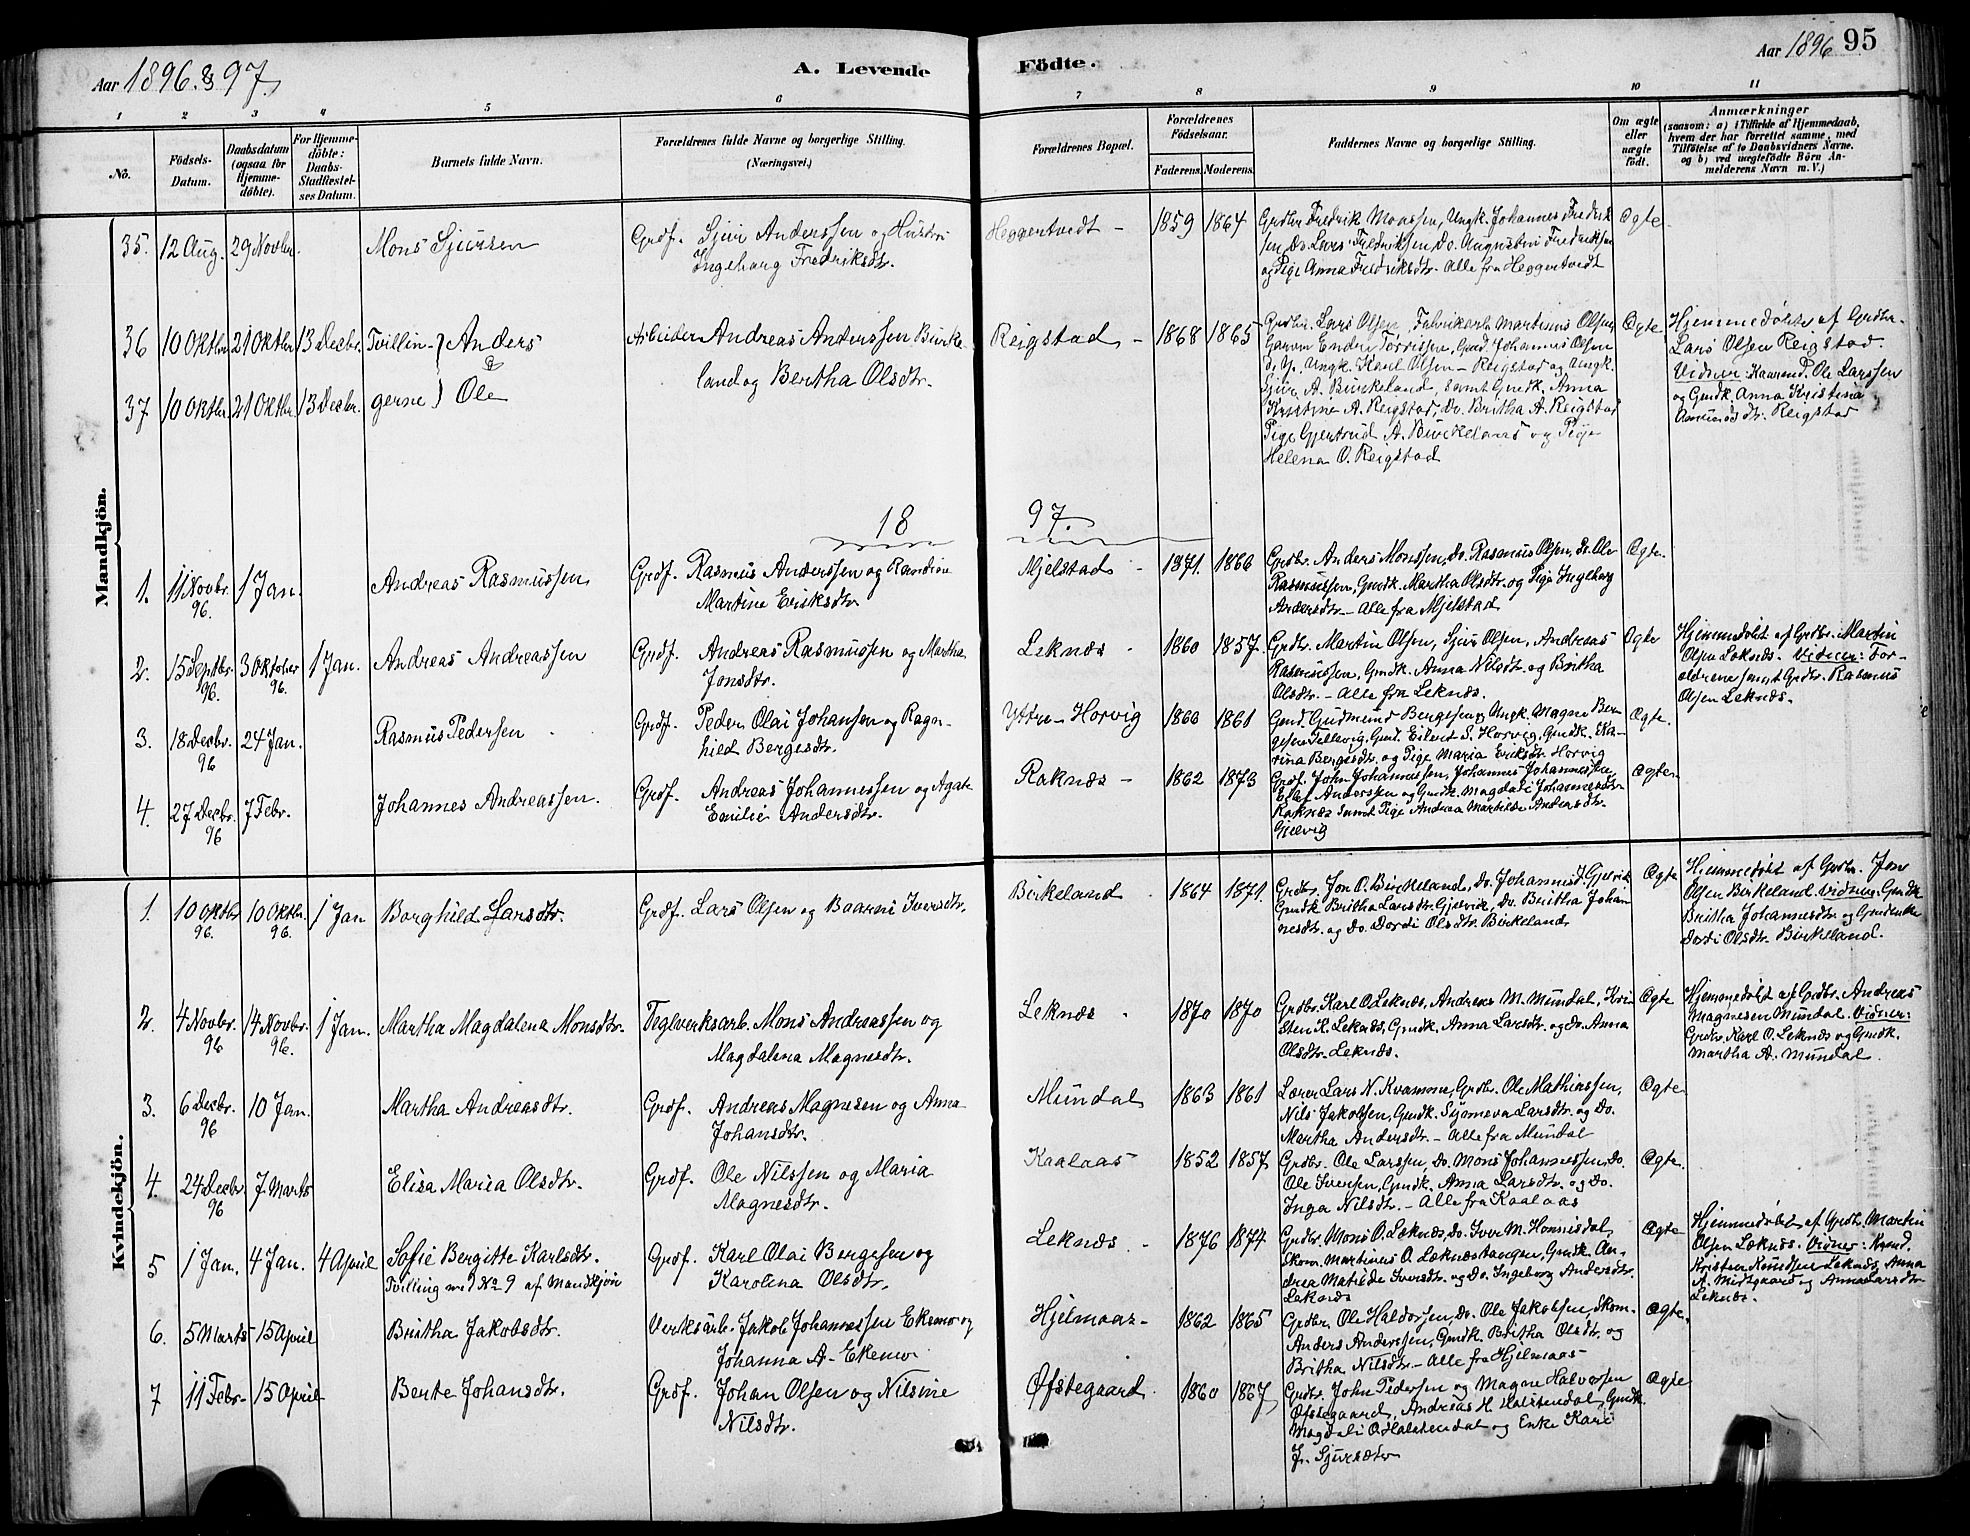 Aar 1896 & 97.
A. Levende
Födte.
Aar 1896
95
1 2 3 4 5 6 7 8 9 10 11
No.
Födsels-
Datum.
Daabsdatum
(ogsaa for
Hjemme-
döbte).
For Hjemme-
döbte:
Daabs-
Stadfæstel-
ses Datum.
Barnets fulde Navn.
Forældrenes fulde Navne og borgerlige Stilling.
(Næringsvei.)
Forældrenes Bopæl.
Forældrenes
Födselsaar.
Faderens. Moderens.
Faddernes Navne og borgerlige Stilling.
Om ægte
eller
uægte
født.
Anmærkninger
(saasom: a) i Tilfælde af Hjemmedaab,
hvem der har forrettet samme, med
Tilföielse af to Daabsvidners Navne.
og b) ved uægtefödte Börn An-
melderens Navn m. V.)
Mandkjön.
35. 12 Aug. 29 Novbr. Mons Sjursen
Grdf. Sjur Anderssen og Hustru
Ingeborg Fredriksdtr.
Heggertvedt - 1859 1864
Grdbr. Fredrik Monssen, Ungk. Johannes Fredrik
sen, Do. Lars Fredriksen, Do. Augustin Fredriksen
og Pige Anna Fredriksdtr. Alle fra Heggertvedt
Ægte.
36 10 Oktbr. 21 Oktbr. 13 Decbr. Tvillin- Anders
&
37 10 Oktbr. 21 Oktbr. 13 Decbr. gerne Ole
Arbeider Andreas Anderssen Birke-
land og Bertha Olsdtr.
Reigstad - 1868 1865
Grdbr. Lars Olsen, Fabrikarb. Martinus Olsen,
Garver Ender Torrissen, Gmd. Johannes Olsen
Ungk. Karl Olsen - Reigstad og Ungk.
Sjur A. Birkeland, samt Gmdk. Anna
Kristine A. Reigstad, Do. Britha A. Reigstad
Pige Gjertrud A. Birkeland og Pige
Helena O. Reigstad
Ægte
Hjemmedøbte af Grdbr.
Lars Olsen Reigstad.
Vidner: Kaarmd. Ole Larssen
og Gmdk. Anna Kristina
Amundsdtr. Reigstad
18 97.
1. 11 Novbr. 96. 1 Jan. Andreas Rasmussen
Grdf. Rasmus Anderssen og Randine
Martine Eriksdtr.
Mjelstad - 1871. 1866
Grdbr. Anders Monssen, Do. Rasmus Olsen, Do. Ole
Rasmussen, Gmdk. Martha Olsdtr. og Pige Ingeborg
Andersdtr. - Alle fra Mjelstad
Ægte.
2. 15 Septbr. 96. 3 Oktober 96. 1 Jan. Andreas Andreassen
Grdf. Andreas Rasmussen og Martha
Jonsdtr.
Leknæs - 1860 1857.
Grdbr. Martin Olsen, Sjur Olsen, Andreas
Rasmussen, Gmdk. Anna Nilsdtr. og Britha
Olsdtr. - Alle fra Leknæs.
Ægte
Hjemmedøbt af Grdbr. Martin
Olsen Leknæs. Vidner: For-
ældrene samt Grdbr. Rasmus
Olsen Leknæs.
3. 18 Decbr. 96 24 Jan. Rasmus Pedersen
Grdf. Peder Olai Johansen og Ragn-
hild Bergesdtr.
Yttre-Horvig 1860 1861
Gmd. Gudmund Bergesen og Ungk. Magne Ber-
gesen Tellevig, Gmd. Eilert S. Horvig, Gmdk. Ka-
rina Bergesdtr. og Pige Maria Eriksdtr. Horvig
Ægte.
4. 27 Decbr. 96 7 Febr. Johannes Andreassen.
Grdf. Andreas Johannessen og Agate
Emilie Andersdtr.
Raknæs - 1862 1873
Grdf. John Johannessen, Johannes Johannessen,
Anderssen og Gmdk. Magdali Johannesdtr.
Raknæs samt Pige Andrea Mathilde Andersdtr.
Gjelvig
Ægte.
Kvindekjön.
1. 10 Oktbr. 96. 10 Oktbr. 96. 1 Jan Borghild Larsdtr.
Grdf. Lars Olsen og Baarni Iversdtr.
Birkeland - 1864 1871.
Grdbr. Jon O. Birkeland, Do. Johannes J. Gjelvik
Gmdk. Britha Larsdtr. Gjelvik, Do. Britha Johan
nesdtr. og Do. Dordi Olsdtr. Birkeland
Ægte
Hjemmedøbt af Grdbr. Jon
Olsen Birkeland. Vidner: Gmdk.
Britha Johannesdtr. og Grdenke
Dordi Olsdtr. Birkeland.
2. 4 Novbr. 96 14 Novbr. 96. 1 Jan. Martha Magdalena Monsdtr.
Teglverksarb. Mons Andreassen og
Magdalena Magnesdtr.
Leknæs - 1870 1870
Grdbr. Karl O. Leknæs, Andreas M. Mundal, Kri
sten K. Leknæs, Gmdk. Anna Larsdtr. og Do. Anna
Olsdtr. Leknæs.
Ægte
Hjemmedøbt af Grdbr. Andreas
Magnesen Mundal. Vidner:
Grdbr. Karl O. Leknæs og Gmdk.
Martha A. Mundal.
3. 6 Decbr. 96 10 Jan. Martha Andreasdtr.
Grdf. Andreas Magnesen og Anna
Johansdtr.
Mundal 1863 1861
Lærer Lars N. Kvamme, Grdbr. Ole Mathiassen,
Nils Jakobsen, Gmdk. Synneva Larsdtr. og Do.
Martha Andersdtr. - Alle fra Mundal
Ægte
4. 24 Decbr. 96 7. Marts Elisa Maria Olsdtr.
Grdf. Ole Nilssen og Maria
Magnesdtr.
Kaalaas 1852 1857
Grdbr. Ole Larssen, Do. Mons Johannessen, Do.
Ole Iversen, Gmdk. Anna Larsdtr. og Do.
Inga Nilsdtr. - Alle fra Kaalaas
Ægte.
5 1 Jan. 4 Jan. 4 April Sofie Bergitte Karlsdtr.
Tvilling med No 9 af Mandkjøn
Grdf. Karl Olai Bergesen og
Karolina Olsdtr.
Leknæs. 1876 1874
Grdbr. Mons O. Leknæs, Do. Iver M. Honnisdal,
Skom. Martinus O. Leknæstangen, Gmdk. An-
drea Matilde Iversdtr. og Do. Ingeborg Andersdtr.
Leknæs
Ægte
Hjemmedøbt af Grdbr. Martin
Olsen Leknæs. Vidner: Kaarmd.
Kristen Knudsen Leknæs, Anna
A. Midtgaard og Anna Larsdtr.
Leknæs.
6. 5 Marts 15 April Britha Jakobsdtr.
Verksarb. Jakob Johannessen Ekemo og
Johanna A. Ekemo
Hjelmaas - 1862 1865
Grdbr. Ole Haldorsen, Do. Ole Jakobsen Skom.
Anders Anderssen, Gmdk. Britha Olsdtr. og
Britha Nilsdtr. - Alle fra Hjelmaas
Ægte.
7 11 Febr. 15 April Bente Johansdtr.
Grdf. Johan Olsen og Nilsine
Nilsdtr.
Øfstegaard. 1860 1867
Grdbr. John Pedersen og Magne Halvorsen
Øfstegaard, Andreas H. Halstendal, Gmdk.
Magdali O. Halstendal og Enke Kari
J. Sjursæter
Ægte